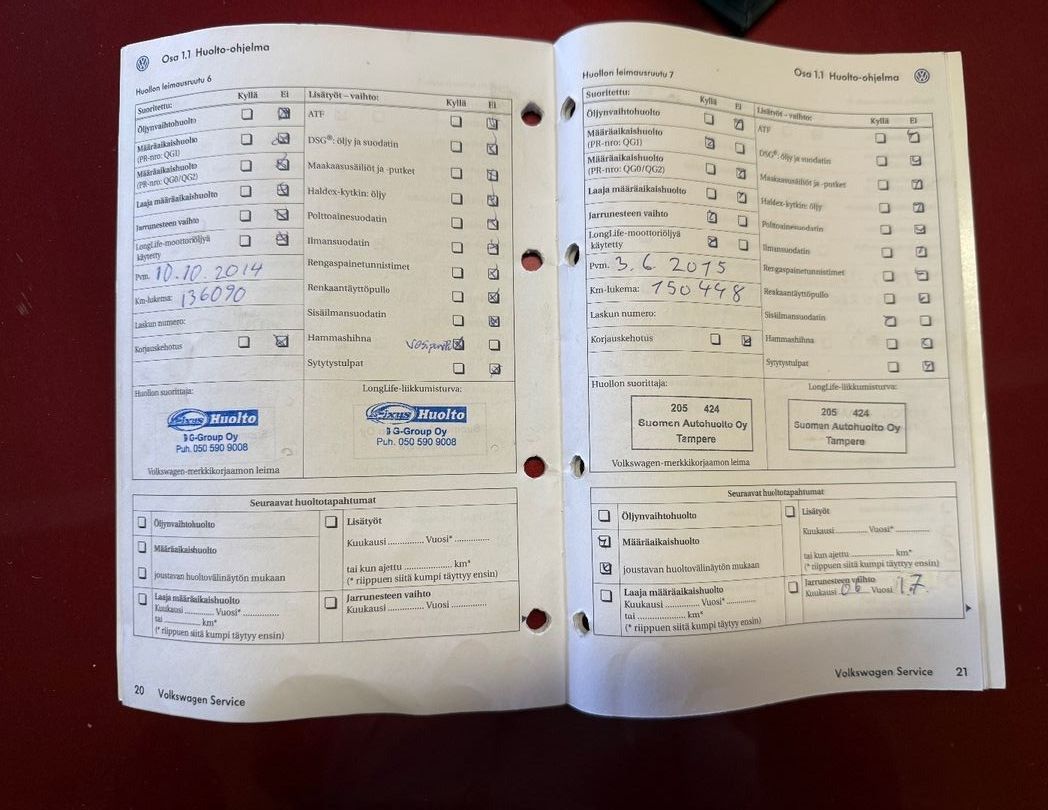 Osa 1.1 Huolto-ohjelma
Huollon leimausruutu 6
Suoritettu: Kyllä Ei
Öljynvaihtohuolto
Määräaikaishuolto
(PR-nro: QG1)
Määräaikaishuolto
(PR-nro: QG0/QG2)
Laaja määräaikaishuolto
Jarrunesteen vaihto
LongLife-moottoriöljyä
käytetty
Pvm. 10.10.2014
Km-lukema: 136090
Laskun numero:
Korjauskehotus
Lisätyöt – vaihto: Kyllä Ei
ATF
DSG®: öljy ja suodatin
Maakaasusäiliöt ja -putket
Haldex-kytkin: öljy
Polttoainesuodatin
Ilmansuodatin
Rengaspainetunnistimet
Renkaantäyttöpullo
Sisäilmansuodatin
Hammashihna
Sytytystulpat
Huollon suorittaja:
Fixus Huolto
G-Group Oy
Puh. 050 590 9008
Volkswagen-merkkikorjaamon leima
LongLife-liikkumisturva:
Fixus Huolto
G-Group Oy
Puh. 050 590 9008
Seuraavat huoltotapahtumat
Öljynvaihtohuolto
Määräaikaishuolto
joustavan huoltovälinäytön mukaan
Laaja määräaikaishuolto
Kuukausi ............ Vuosi* ...............
tai ............ km*
(* riippuen siitä kumpi täytyy ensin)
Lisätyöt
Kuukausi ............... Vuosi* ..............
tai kun ajettu .................. km*
(* riippuen siitä kumpi täytyy ensin)
Jarrunesteen vaihto
Kuukausi ............... Vuosi ..............
20 Volkswagen Service
Huollon leimausruutu 7
Osa 1.1 Huolto-ohjelma
Suoritettu: Kyllä Ei
Öljynvaihtohuolto
Määräaikaishuolto
(PR-nro: QG1)
Määräaikaishuolto
(PR-nro: QG0/QG2)
Laaja määräaikaishuolto
Jarrunesteen vaihto
LongLife-moottoriöljyä
käytetty
Pvm. 3.6.2015
Km-lukema: 150448
Laskun numero:
Korjauskehotus
Lisätyöt – vaihto: Kyllä Ei
ATF
DSG®: öljy ja suodatin
Maakaasusäiliöt ja -putket
Haldex-kytkin: öljy
Polttoainesuodatin
Ilmansuodatin
Rengaspainetunnistimet
Renkaantäyttöpullo
Sisäilmansuodatin
Hammashihna
Sytytystulpat
Huollon suorittaja:
205 424
Suomen Autohuolto Oy
Tampere
Volkswagen-merkkikorjaamon leima
LongLife-liikkumisturva:
205 424
Suomen Autohuolto Oy
Tampere
Seuraavat huoltotapahtumat
Öljynvaihtohuolto
Määräaikaishuolto
joustavan huoltovälinäytön mukaan
Laaja määräaikaishuolto
Kuukausi ............ Vuosi* ............
tai ............ km*
(* riippuen siitä kumpi täytyy ensin)
Lisätyöt
Kuukausi ............... Vuosi* ..............
tai kun ajettu .................. km*
(* riippuen siitä kumpi täytyy ensin)
Jarrunesteen vaihto
Kuukausi 06 Vuosi 17
Volkswagen Service 21